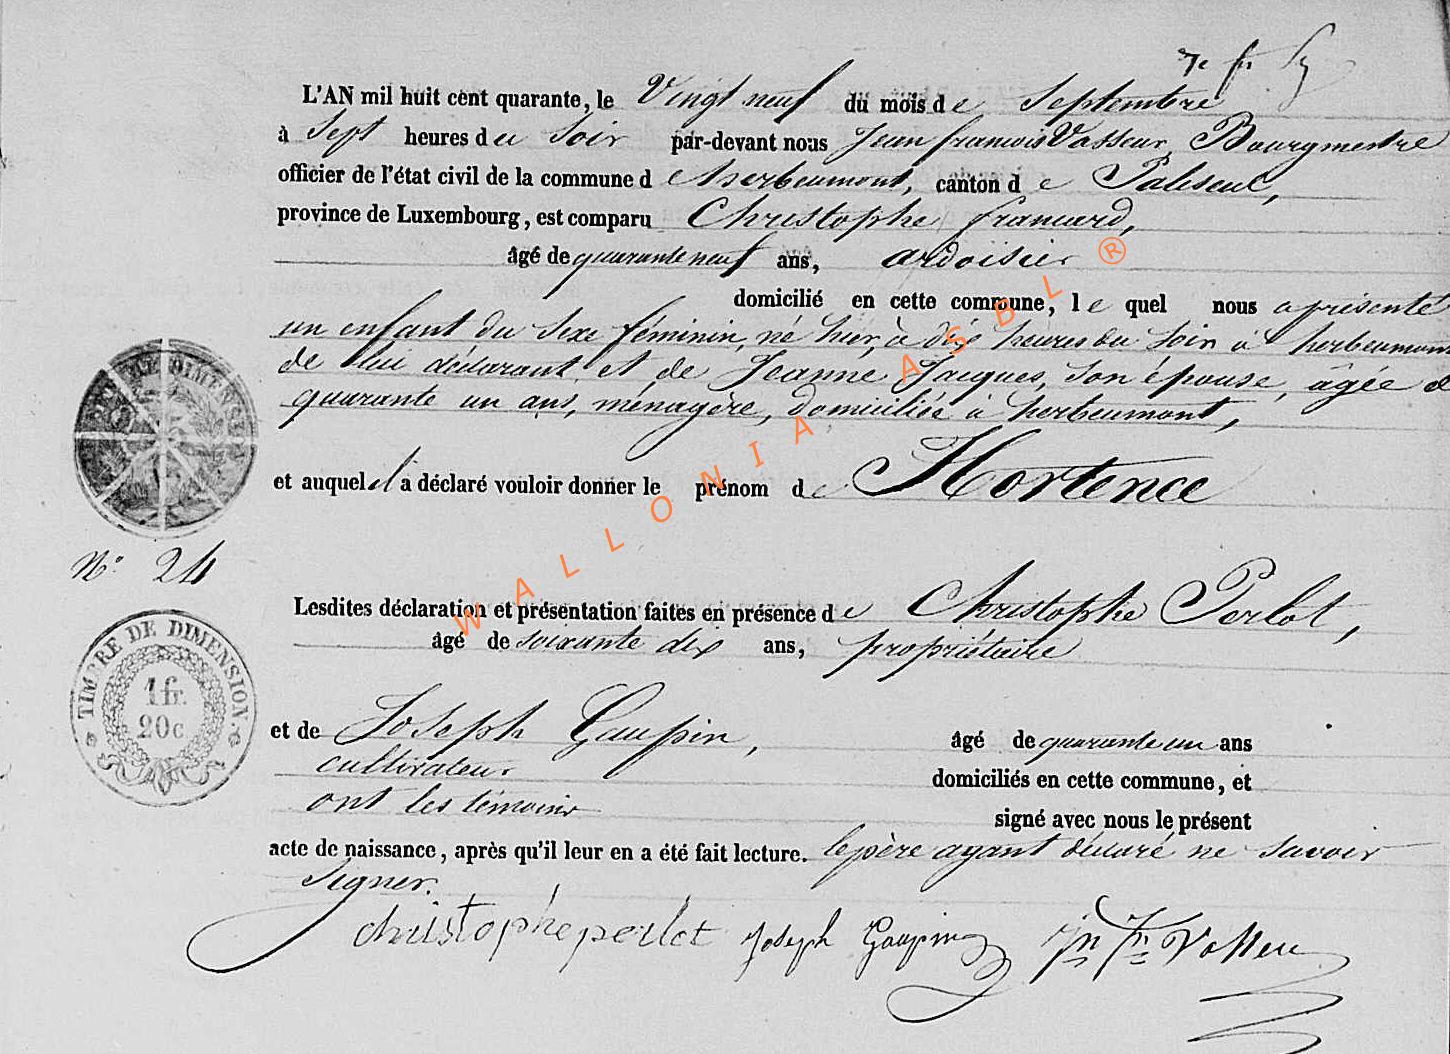 L'AN mil huit cent quarante, le Vingt neuf du mois de Septembre
à Sept heures du Soir par-devant nous Jean francois Vasseur, Bourgmestre
officier de l'état civil de la commune d'herbeumont, canton de Paliseul,
province de Luxembourg, est comparu Christophe francard,
âgé de quarante neuf ans, ardoisier
domicilié en cette commune, lequel nous a présenté
un enfant du Sexe féminin, né hier, à dix heures du Soir à herbeumont
de lui déclarant et de Jeanne Jacques, Son épouse, âgée de
quarante un ans, ménagère, domiciliée à herbeumont,
et auquel il a déclaré vouloir donner le prénom de Hortence
N° 24
Lesdites déclaration et présentation faites en présence de Christophe Perlot,
âgé de soixante dix ans, propriétaire
et de Joseph Gaupin, âgé de quarante un ans
cultivateur domiciliés en cette commune, et
ont les témoins signé avec nous le présent
acte de naissance, après qu'il leur en a été fait lecture. le père ayant déclaré ne Savoir
Signer.
christophe perlot Joseph Gaupin Jn Fs Vasseur
TIMBRE DE DIMENSION
1 fr.
20c
WALLONIA ASBL ®